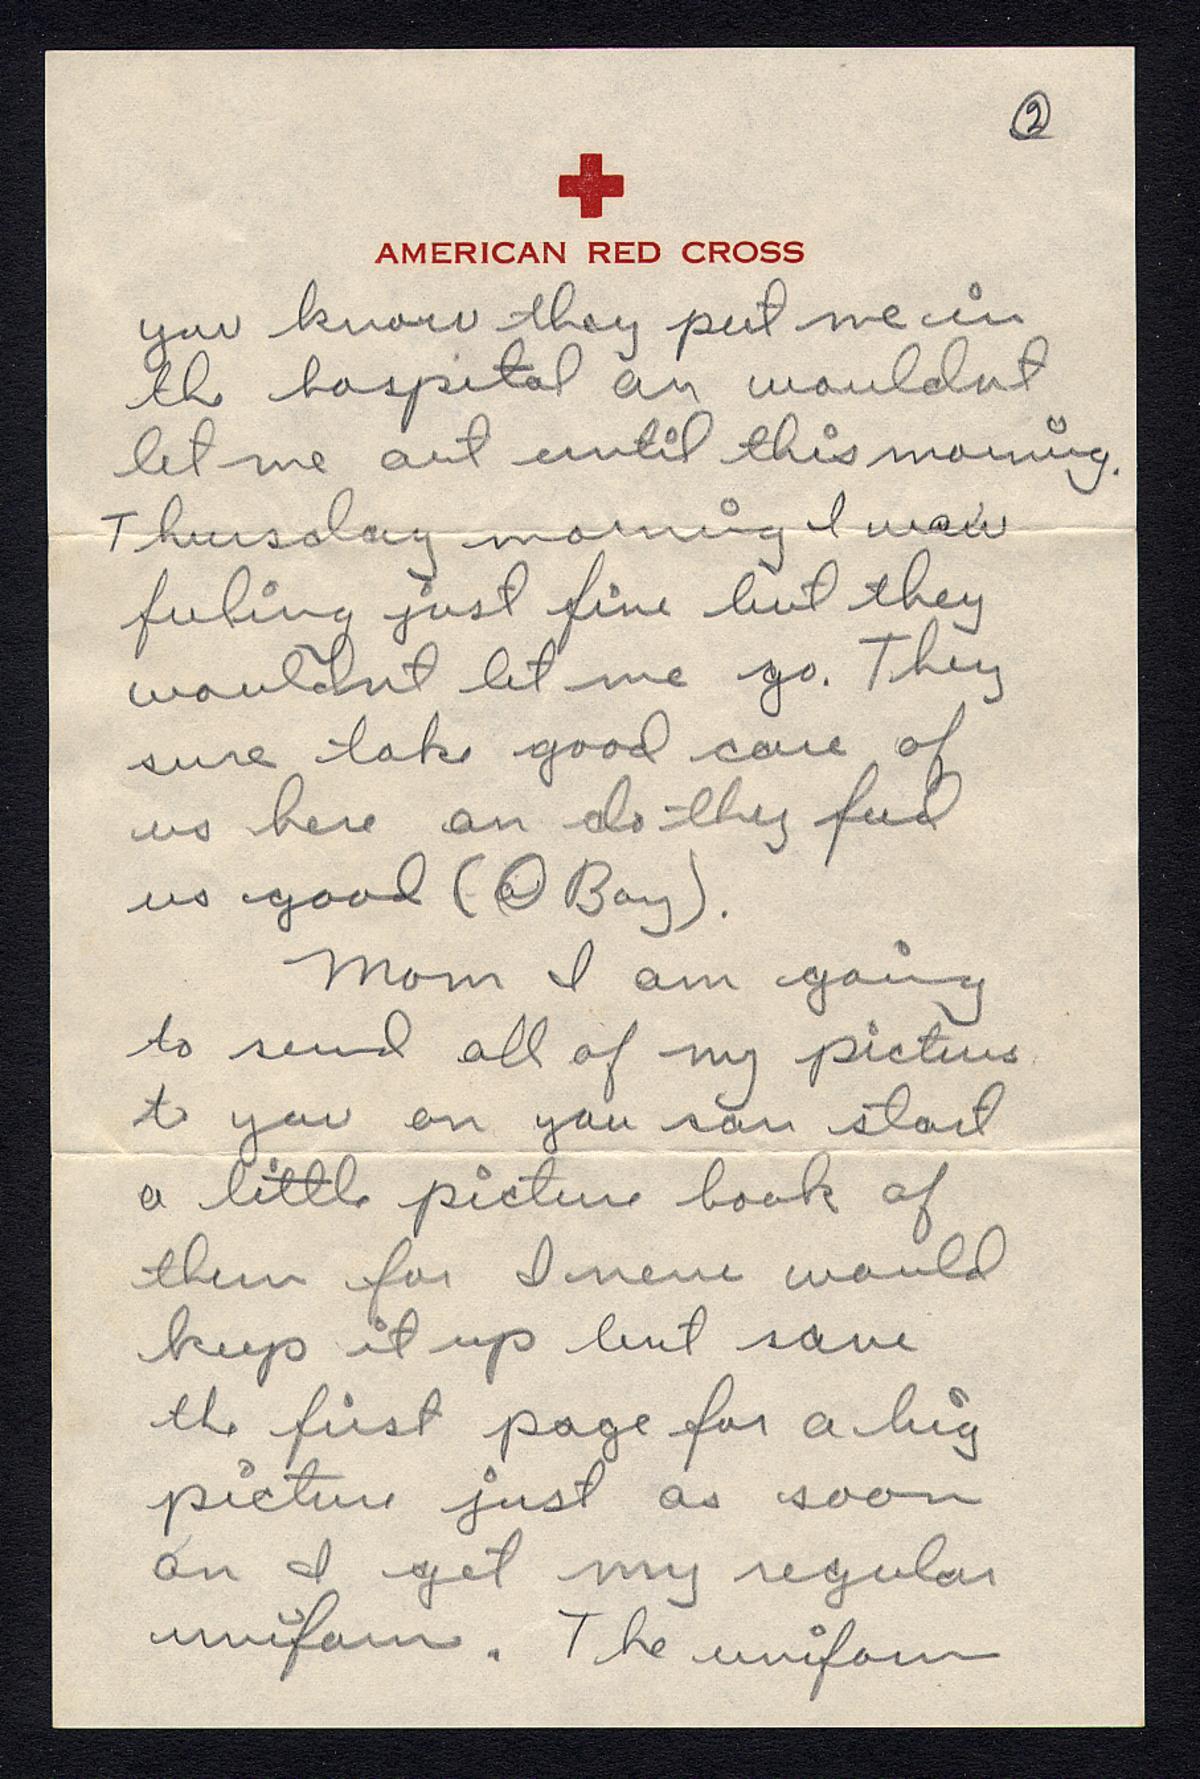 ②
AMERICAN RED CROSS
you know they put me in
the hospital an wouldnt
let me out until this morning.
Thursday morning I was
feeling just fine but they
wouldnt let me go. They
sure take good care of
us here an do they feed
us good (O Boy).
Mom I am going
to send all of my pictures
to you an you can start
a little picture book of
them for I never would
keep it up but save
the first page for a big
picture just as soon
an I get my regular
uniform. The uniform